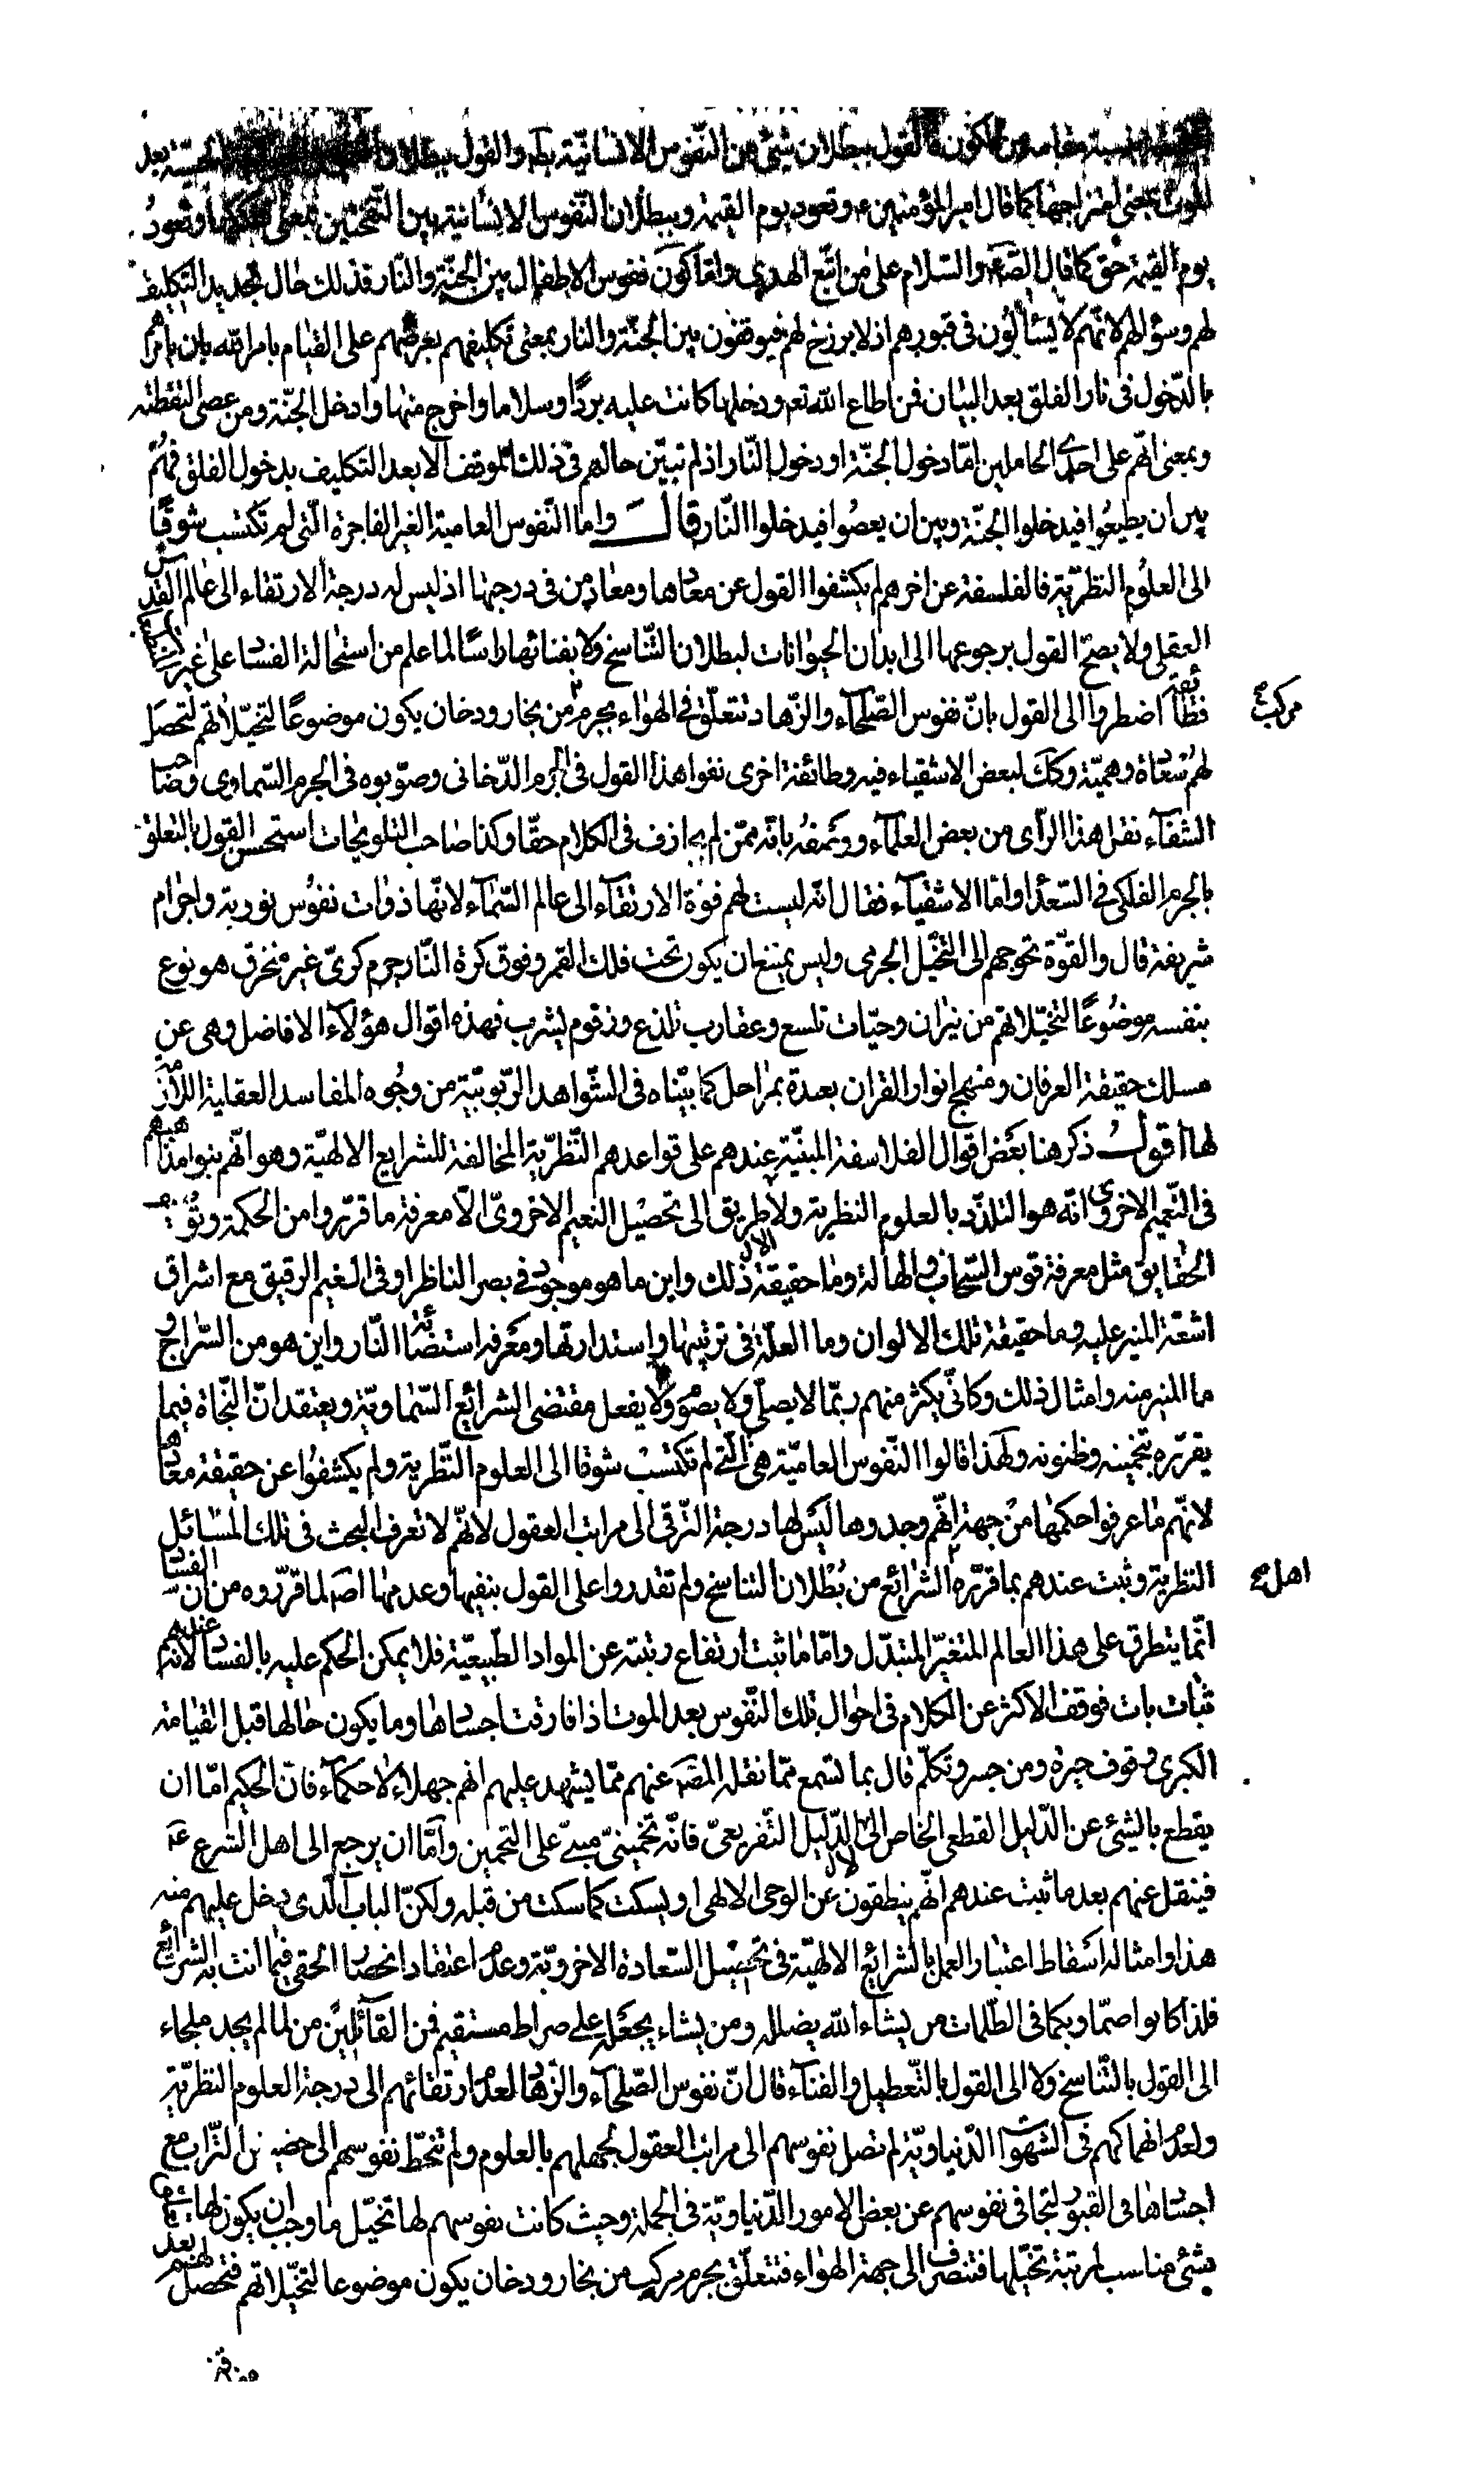 القول ببطلان شئ من النّفوس الانسانيّة بط والقول ببطلان الحسيّة بعد
الموت بمعنى امتزاجها كما قال امير المؤمنين ع وتعود يوم القيمة وببطلان النّفوس الانسانية بين النّفختين بمعنى تفككها وتعود
يوم القيمة حق كما قال الصّ ع والسّلام على من اتّبع الهدى وامّا كون نفوس الاطفال بين الجنّة والنّار فذلك حال تجديد التّكليف
لهم وسؤالهم لانّهم لا يُسألون فى قبورهم اذ لا برزخ لهم فيوقفون بين الجنّة والنار بمعنى تكليفهم بعرضهم على القيام بامر الله بان يامرهم
بالدّخول فى نار الفلق بعد البيان فمن اطاع الله تع ودخلها كانت عليه بردًا وسلاما واخرج منها وادخل الجنّة ومن عصى التقطته
وبمعنى انّهم على احدى الحاملين امّا دخول الجنّة او دخول النّار اذ لم تبيّن حالهم فى ذلك الموقف الا بعد التكليف بدخول الفلق فهُم
بين ان يطيعُوا فيدخلوا الجنّة وبين ان يعصُوا فيدخلوا النّار قال واما النّفوس العامية الغير الفاجرة الّتى لم تكتسب شوقًا
الى العلُوم النظريّة فالفلسفة عن اخرهم لم يكشفوا القول عن معادها ومعاد من فى درجتها اذ ليس له درجة الارتقاء الى عالم القدس
العقلى ولا يصحّ القول برجوعها الى ابدان الحيوانات لبطلان التّناسخ ولا بفنائها راسًا لما علم من استحالة الفساد على غير
فطائفة اضطروا الى القول بانّ نفوس الصّلحاء والزّهاد تتعلّق فى الهواء بجرم من بخار ودخان يكون موضوعًا لتخيّلاتهم لتحصل
مركب صح
لهم سعادة وهميّة وكك لبعض الاشقياء فيه وطائفة اخرى نفوا هذا القول فى الجرم الدّخانى وصوّبوه فى الجرم السّماوى وصاحب
الشفاء نقل هذا الرّأى من بعض العلماء ووصفه بانّه ممّن لم يجازف فى الكلام حقّا وكذا صاحب التلويحات استحسن القول بالتعلق
بالجرم الفلكى فى السّعدا واما الاشقياء فقال انّه ليست لهم قوّة الارتقاء الى عالم السّماء لانّها ذوات نفوس نورية واجرام
شريفة قال والقوّة تحوجهم الى التخيّل الجرمى وليس بممتنع ان يكون تحت فلك القمر وفوق كرة النّار جرم كرىّ غير منخرق هو نوع
بنفسه موضُوعًا لتخيّلاتهم من نيران وحيّات تلسع وعقارب تلذع وزقوم يشرب فهذه اقوال هؤلاء الافاضل وهى عن
مسلك حقيقة العرفان ومنهج انوار القران بعيدة بمراحل كما بيّناه فى الشّواهد الرّبوبيّة من وجُوه المفاسد العقلية اللازمة
لها اقول ذكر هنا بعض اقوال الفلاسفة المبنيّة عندهم على قواعدهم النّظريّة المخالفة للشرايع الالهيّة وهو انّهم بنوا مذاهبهم
فى النّعيم الاخروى انّه هو التلذّذ بالعلوم النظرية ولا طريق الى تحصيل النعيم الاخروىّ الّا معرفة ما قرّروا من الحكمة
الحقايق مثل معرفة قوس السّحاب والهالة وما حقيقة ذلك واين ما هو موجود فى بصر الناظر او فى الغيم الرقيق مع اشراق
اشعّة المنير عليه وما حقيقة تلك الالوان وما العلّة فى ترتيبها واستدارتها ومعرفة استضائة النّار واين هو من السّراج و
ما المنير منه وامثال ذلك وكانّ يكثر منهم ربّما لا يصلّى ولا يصوم ولا يفعل مقتضى الشرائع السّماويّة ويعتقد انّ النّجاة فيما
يقرّره بتخمينه وظنونه ولهذا قالوا النّفوس العاميّة هى الّتى لم تكتسب شوقا الى العلوم النّظرية ولم يكشفُوا عن حقيقة معادها
لانّهم ما عرفوا حكمها من جهة انّهم وجدوها ليس لها درجة التّرقى الى مراتب العقول لانّهم لا تعرف البحث فى تلك المسائل
النظرية وثبت عندهم بما قرّره الشرائع من بُطلان التناسخ ولم تقدروا على القول بنفيها وعدمها اصلا لما قرّروه من ان الفساد
اهل صح
انّما يتطرق على هذا العالم المتغيّر المتبدّل وامّا ما ثبت ارتفاع رتبته عن المواد الطّبيعيّة فلا يمكن الحكم عليه بالفساد لانه عندهم
ثبات بات فوقف الاكثر عن الكلام فى احوال تلك النّفوس بعد الموت اذا فارقت اجسادها وما يكون حالها قبل القيامة
الكبرى وقوف حيرة ومن جسر وتكلّم قال بما تسمع ممّا نقله المصَ عنهم ممّا يشهد عليهم انهم جهلاء لا حكماء فانّ الحكيم امّا ان
يقطع بالشئ عن الدّليل القطعى الخاص الدّليل التّفريعىّ فانّه تخمينىّ مبنىّ على التخمين وامّا ان يرجع الى اهل الشرع ع
فينقل عنهم بعد ما ثبت عندهم انّهم ينطقون عن الوحى الالهى او يسكت كما سكت من قبله ولكنّ الباب الّذى دخل عليهم منه
هذا وامثاله اسقاط اعتبار العمل بالشرائع الالهيّة فى تحصيل السّعادة الاخرويّة وعدم اعتقاد انحصار الحق فيما اتت به الشرائع
فلذا كانوا صمّا وبكما فى الظّلمات من يشاء الله يضلله ومن يشاء يجعله على صراط مستقيم فمن القآئلين من لما لم يجد ملجاء
الى القول بالتّناسخ ولا الى القول بالتّعطيل والفنآء قال انّ نفوس الصّلحاء والزهّاد لعدم ارتقائهم الى درجة العلوم النظريّة
ولعدم انهماكهم فى الشهوات الدّنياويّة لم تصل نفوسهم الى مراتب العقول لجهلهم بالعلوم ولم تنحطّ نفوسهم الى حضيض التّراب مع
اجسادها فى القبور لتجافى نفوسهم عن بعض الامور الدّنياويّة فى الجملة وحيث كانت نفوسهم لها تخيّل ما وجب ان يكون لها
بشئ مناسب لمرتبة تخيّلها فتنصرف الى جهة الهواء فتتعلّق بجرم مركب من بخار ودخان يكون موضوعا لتخيّلاتهم فتحصل لهم